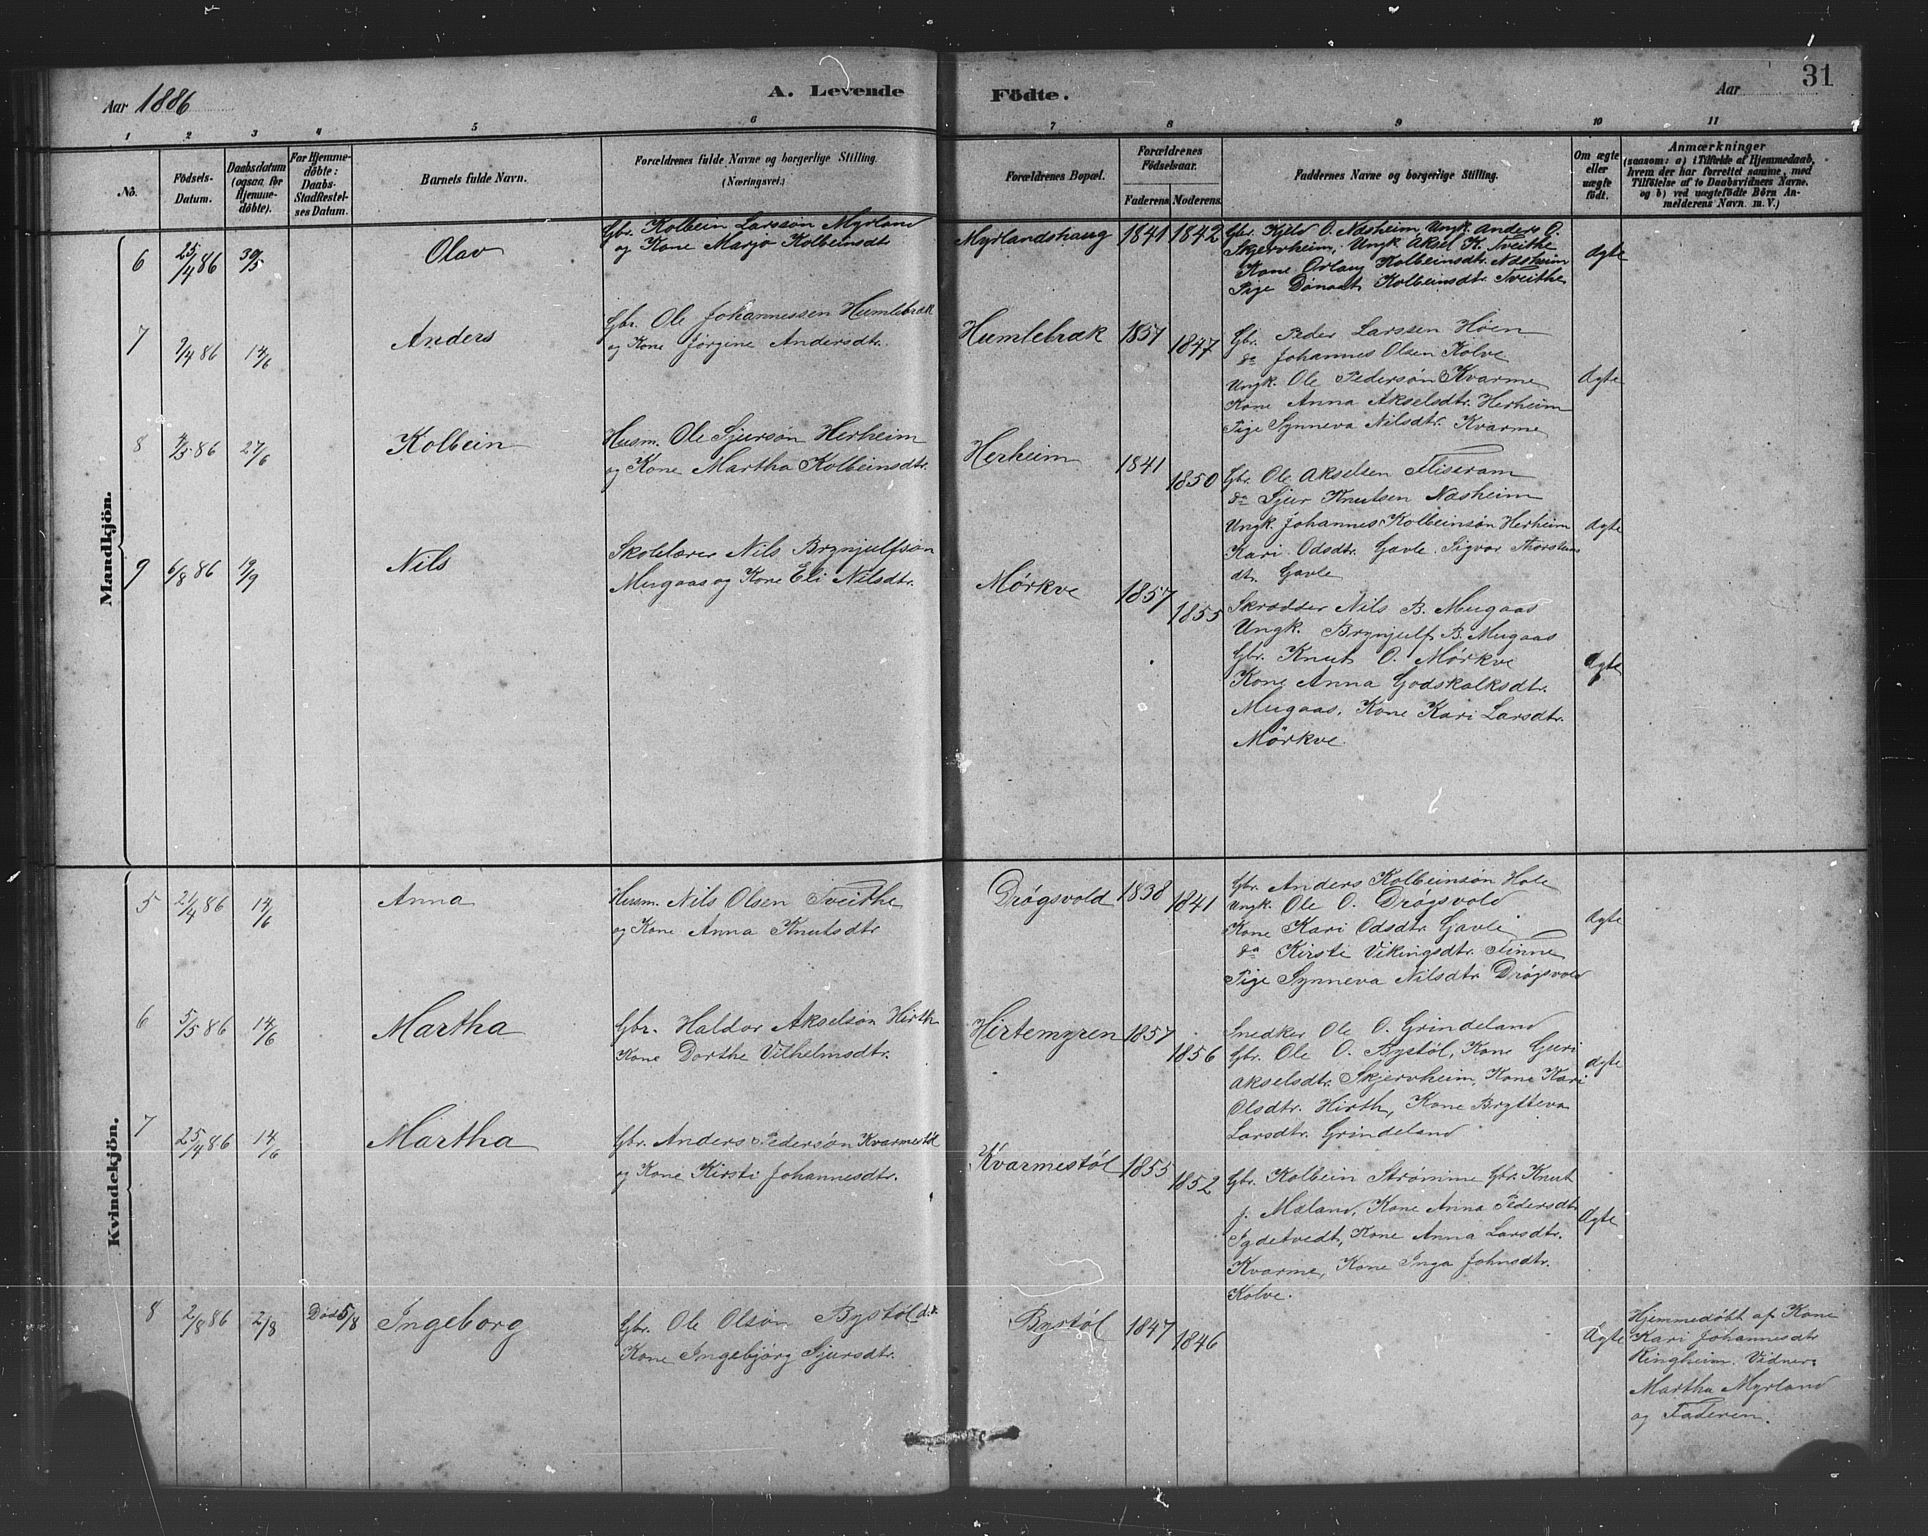 Aar 1886
A. Levende Födte.
Aar
31
1 2 3 4 5 6 7 8 9 10 11
No.
Födsels-Datum.
Daabsdatum (ogsaa for Hjemmedöbte).
For Hjemmedöbte: Daabs-Stadfæstelses Datum.
Barnets fulde Navn.
Forældrenes fulde Navne og borgerlige Stilling. (Næringsvei.)
Forældrenes Bopæl.
Forældrenes Födselsaar.
Faderens Moderens
Faddernes Navne og borgerlige Stilling.
Om ægte eller uægte födt.
Anmærkninger
(saasom: a) i Tilfælde af Hjemmedaab, hvem der har forrettet samme, med Tilföielse af to Daabsvidners Navne, og b) ved uægtefödte Börn Anmelderens Navn m. V.)
Mandkjön.
6 25/4 86 30/5 Olav
Gbr. Kolbein Larssøn Myrland
og Kone Marjo Kolbeinsdt
Myrlandshaug 1841 1842
Gbr. Kjeld O. Næsheim, Ungk. Anders O.
Skjerveheim, Ungk. Aksel K. Tveithe
Kone Orlaug Kolbeinsdtr. Næsheim
Pige Dønaat Kolbeinsdtr Tveithe
Ægte
7 /4 86 14/6 Anders
Gbr. Ole Johannessen Humlebræk
og Kone Jørgine Andersdtr.
Humlebræk 1851 1847
Gbr. Peder Larssen Høen
do Johannes Olsen Kolve
Ungk. Ole Pedersøn Kvarme
Kone Anna Akselsdtr. Herheim
Pige Synneva Nilsdtr. Kvarme
Ægte
8 /5 86 27/6 Kolbein
Husm. Ole Sjursøn Herheim
og Kone Martha Kolbeinsdtr.
Herheim 1841 1850
Gbr. Ole Akselsen Fliseram
do Sjur Knutsen Næsheim
Ungk. Johannes Kolbeinsøn Herheim
Kari Odsdtr. Gavle. Sigvor Thorsteins
dtr. Gavle
Ægte
9 6/8 86 19/9 Nils
Skolelærer Nils Brynjulfsøn
Mugaas og Kone Eli Nilsdtr.
Mørkve 1857 1855
Skrædder Nils B. Mugaas
Ungk. Brynjulf B. Mugaas
Gbr. Knut O. Mørkve
Kone Anna Godskalksdtr.
Mugaas, Kone Kari Larsdtr.
Mørkve.
Ægte
Kvindekjön.
5 21/4 86 14/6 Anna
Husm. Nils Olsen Tveithe
og Kone Anna Knutsdtr
Drøgsvold 1838 1841
Gbr. Anders Kolbeinsøn Hole
Ungk. Ole O. Drøgsvold
Kone Kari Odsdtr. Gavle
do Kirsti Vikingsdtr. Finne
Pige Synneva Nilsdtr. Drøgsvold
Ægte
6 5/5 86 14/6 Martha
Gbr. Haldor Akselsøn Hirth
Kone Dorthe Vilhelmsdtr.
Hirtemyren 1857 1856
Snedker Ole O. Grindeland
Gbr. Ole O. Bystøl, Kone Guri
Akselsdtr. Skjervheim, Kone Kari
Olsdtr. Hirth, Kone Brytteva
Larsdtr. Grindeland
Ægte
7 25/4 86 14/6 Martha
Gbr. Anders Pedersøn Kvarmestøl
og Kone Kirsti Johannesdtr.
Kvarmestøl 1855 1852
Gbr. Kolbein Strømme Gbr. Knut
J. Mæland, Kone Anna Pedersdtr
Kone Anna Larsdtr.
Kvarme, Kone Inga Johnsdtr.
Kolve.
Ægte
8 2/8 86 2/8 Død 5/8 Ingeborg
Gbr. Ole Olsøn Bystøl
Kone Ingebjørg Sjursdtr.
Bystøl 1847 1846
Ægte
Hjemmedøbt af Kone
Kari Johannesdtr
Ringheim. Vidner:
Martha Myrland
og Faderen.